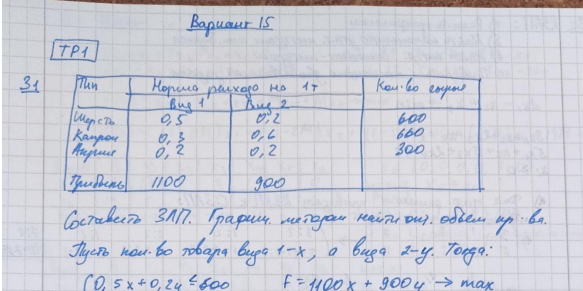 Вариант 15
ТР1
З1
Тип Норма расхода на 1т Кол-во сырья
Вид 1 Вид 2
Шерсть 0,5 0,2 600
Капрон 0,3 0,6 660
Акрил 0,2 0,2 300
Прибыль 1100 900
Составить ЗЛП. Графич. методом найти опт. объем пр-ва.
Пусть кол-во товара вида 1-x, а вида 2-y. Тогда:
{0,5x+0,2y≤600 F=1100x+900y→max